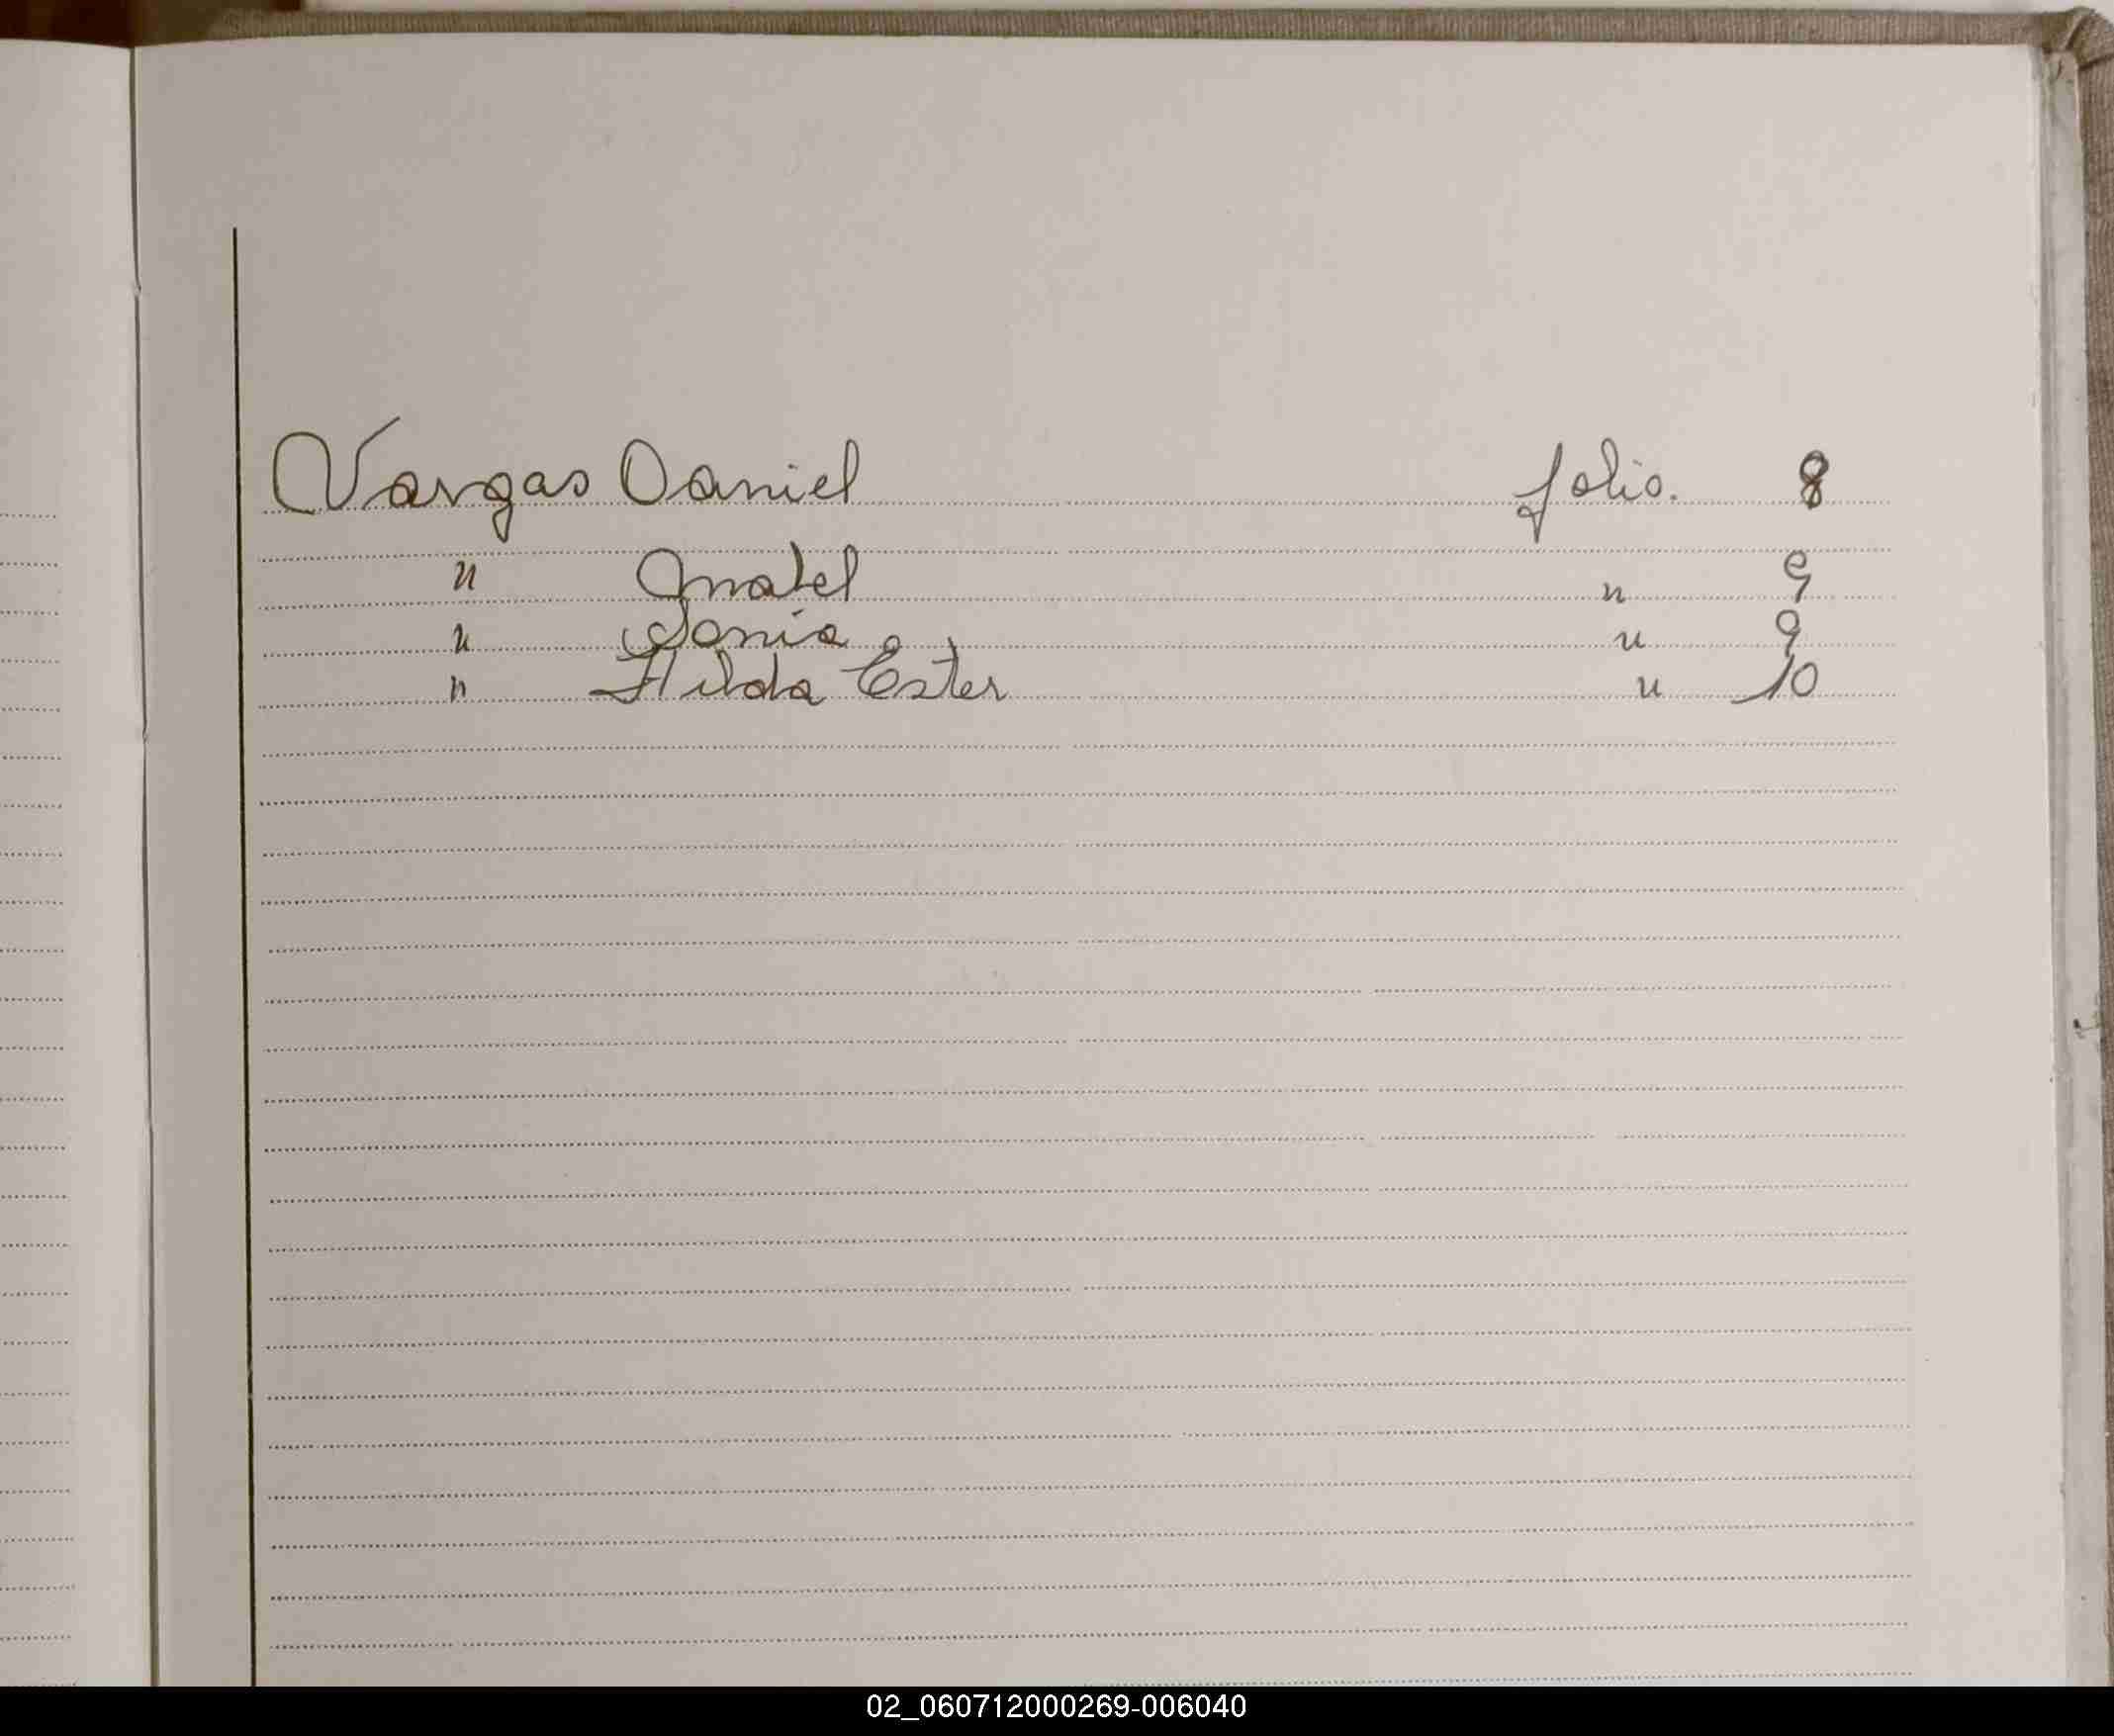 Vargas Daniel folio. 8
" " 9
" Sonia " 9
" Hilda Ester " 10
02_060712000269-006040